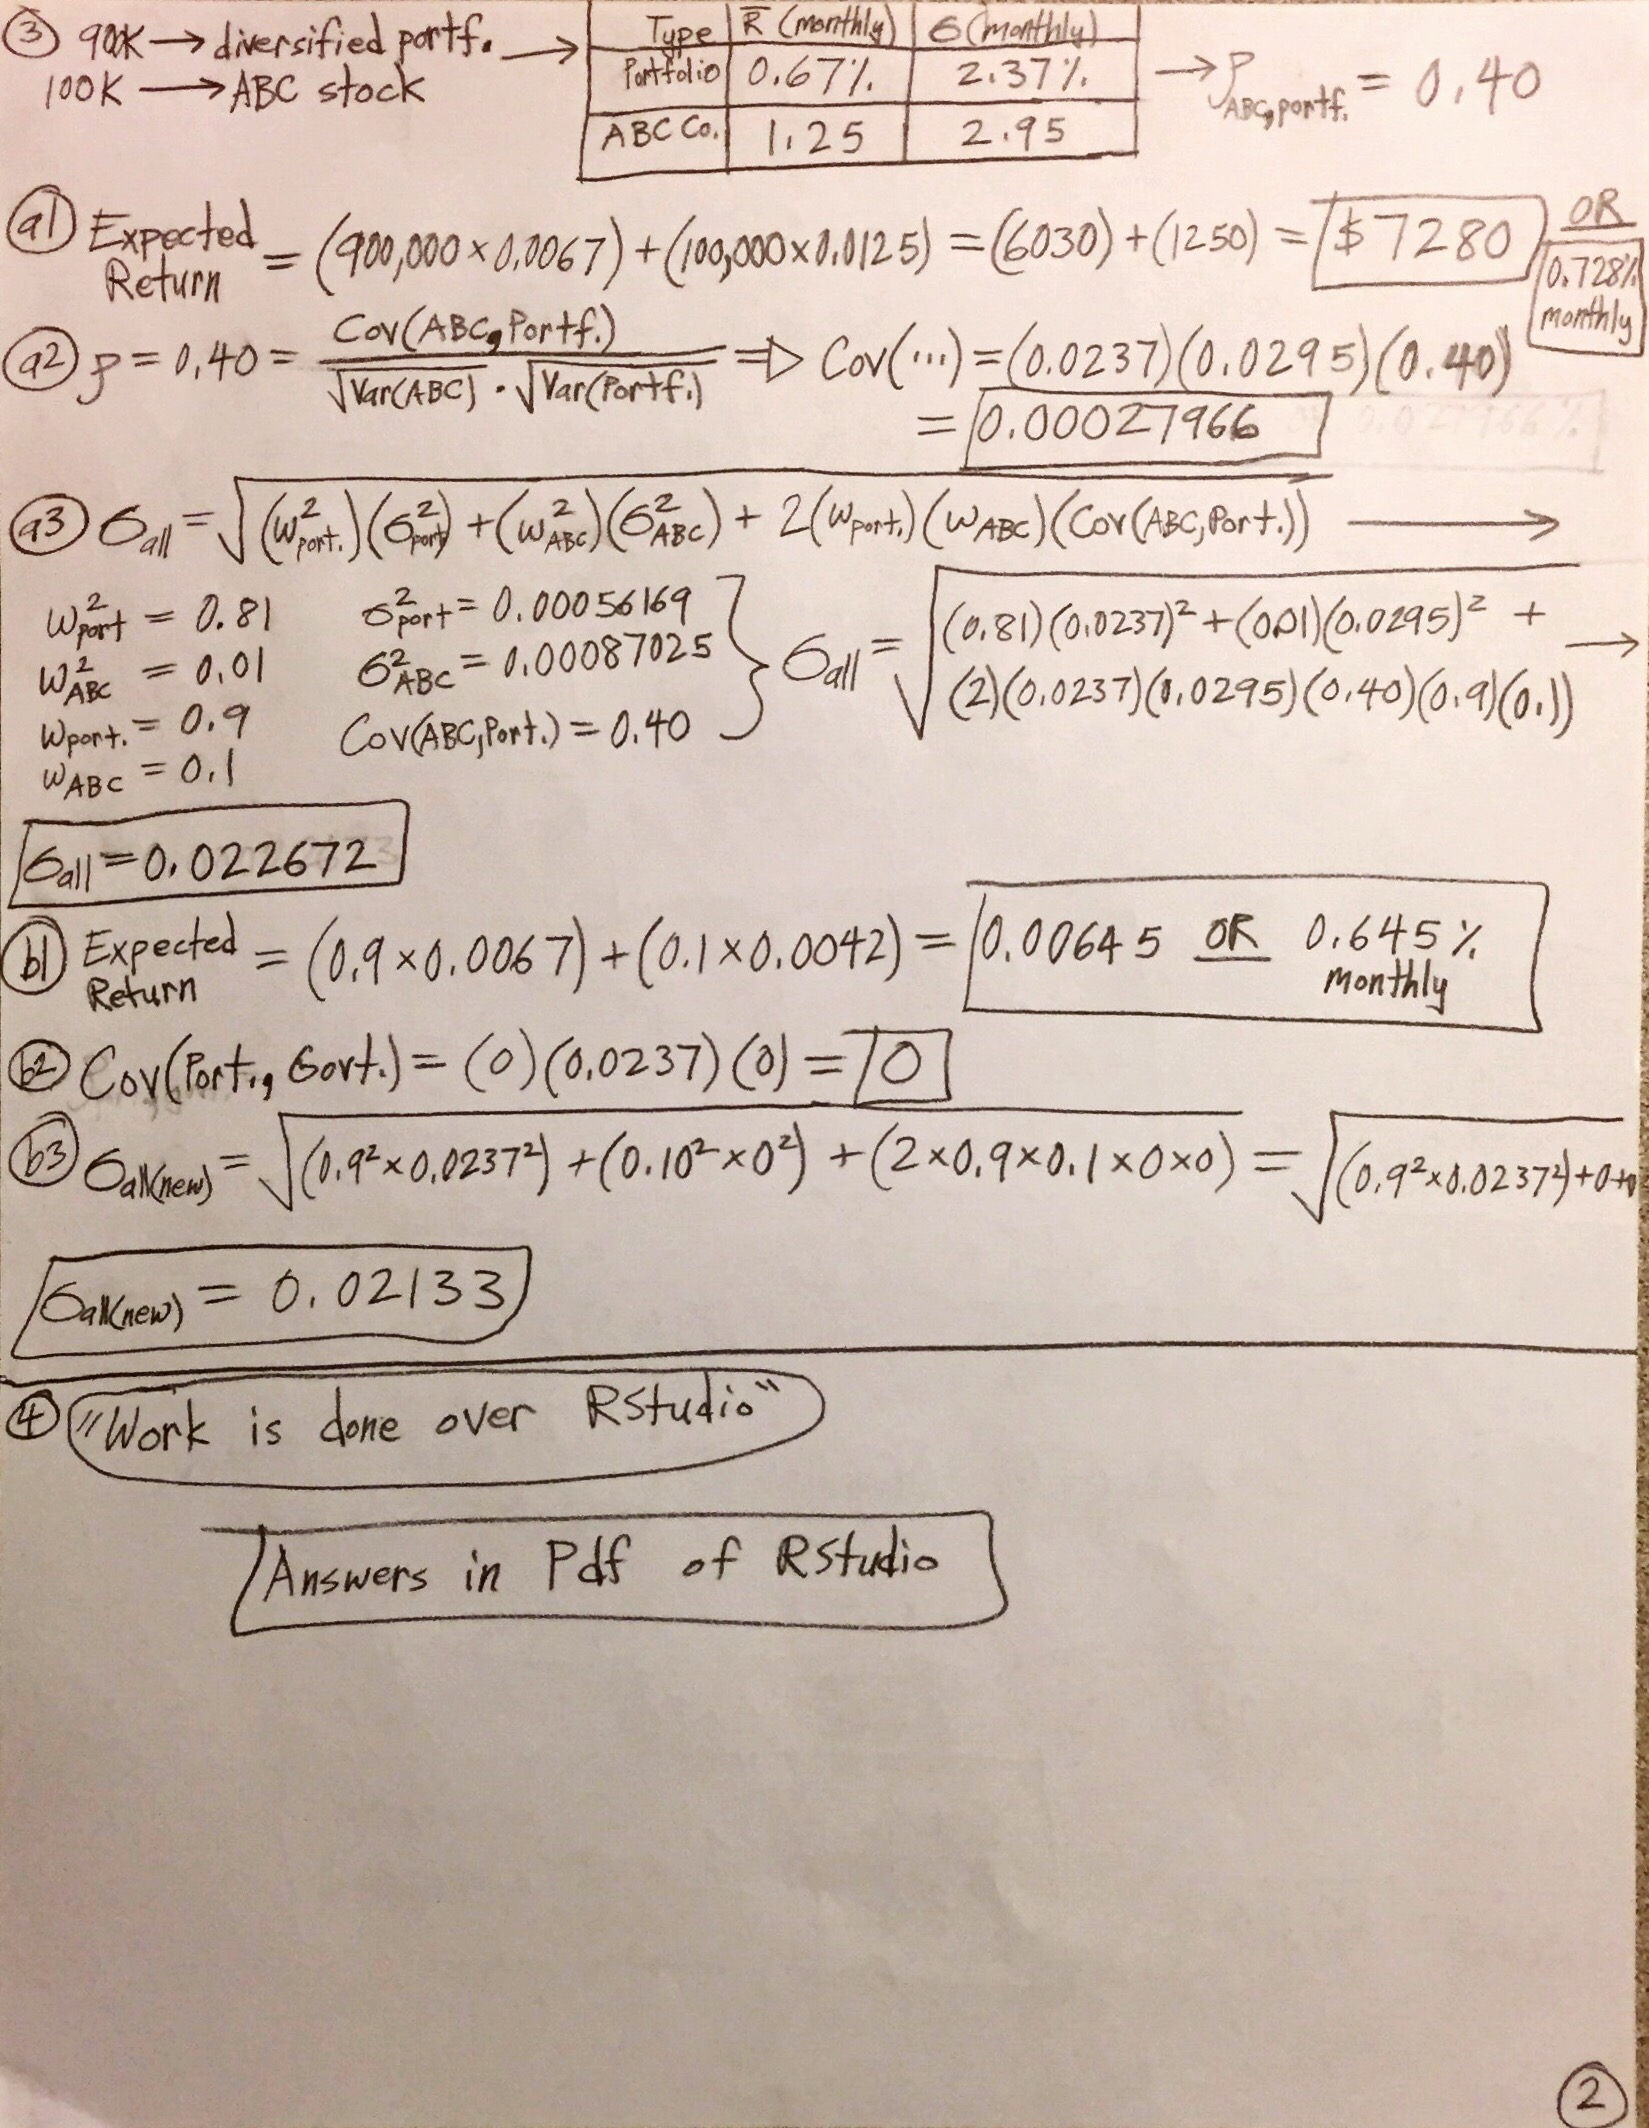 ③ 900K → diversified portf. →
100K → ABC stock
Type | R̅ (monthly) | σ (monthly)
Portfolio | 0.67% | 2.37%
ABC Co. | 1.25 | 2.95
→ ρ ABC, portf. = 0.40
a1 Expected Return = (900,000 × 0.0067) + (100,000 × 0.0125) = (6030) + (1250) = $7280 OR 0.728% monthly
a2 ρ = 0.40 = Cov(ABC, Portf.) / √Var(ABC) · √Var(Portf.) ⇒ Cov(...) = (0.0237)(0.0295)(0.40)
= 0.00027966
a3 σall = √(w²port.)(σ²port) + (w²ABC)(σ²ABC) + 2(wport.)(wABC)(Cov(ABC, Port.)) →
w²port = 0.81
w²ABC = 0.01
wport. = 0.9
wABC = 0.1
σ²port = 0.00056169
σ²ABC = 0.00087025
Cov(ABC, Port.) = 0.40
} σall = √(0.81)(0.0237)² + (0.01)(0.0295)² + →
(2)(0.0237)(0.0295)(0.40)(0.9)(0.1)
σall = 0.022672
b1 Expected Return = (0.9 × 0.0067) + (0.1 × 0.0042) = 0.00645 OR 0.645% monthly
b2 Cov(Port., Govt.) = (0)(0.0237)(0) = 0
b3 σall(new) = √(0.9² × 0.0237²) + (0.10² × 0²) + (2 × 0.9 × 0.1 × 0 × 0) = √(0.9² × 0.0237²) + 0 + 0
σall(new) = 0.02133
④ "Work is done over RStudio"
Answers in Pdf of RStudio
2